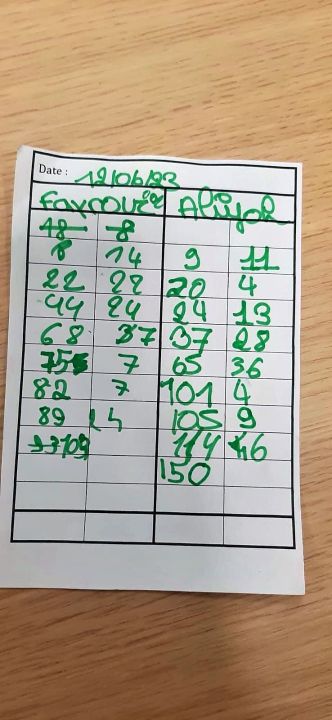 Date : 12/06/23
Aliyah
18 8
8 14 9 11
22 22 20 4
44 24 24 13
68 37 28
7 65 36
82 7 101 4
89 14 105 9
114 46
150